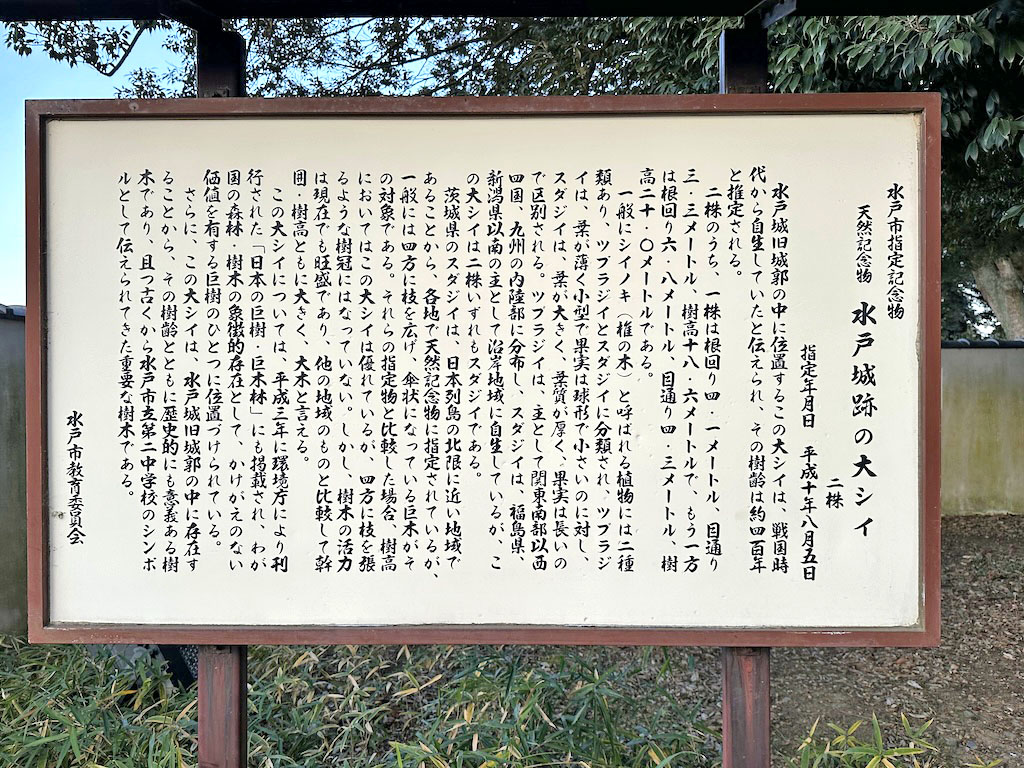 水戸市指定記念物
天然記念物 水戸城跡の大シイ
二株
指定年月日 平成十年八月五日
水戸城旧城郭の中に位置するこの大シイは、戦国時
代から自生していたと伝えられ、その樹齢は約四百年
と推定される。
二株のうち、一株は根回り四・一メートル、目通り
三・三メートル、樹高十八・六メートルで、もう一方
は根回り六・八メートル、目通り四・三メートル、樹
高二十・〇メートルである。
一般にシイノキ（椎の木）と呼ばれる植物には二種
類あり、ツブラジイとスダジイに分類され、ツブラジ
イは、葉が薄く小型で果実は球形で小さいのに対し、
スダジイは、葉が大きく、葉質が厚く、果実は長いの
で区別される。ツブラジイは、主として関東南部以西
四国、九州の内陸部に分布し、スダジイは、福島県、
新潟県以南の主として沿岸地域に自生しているが、こ
の大シイは二株いずれもスダジイである。
茨城県のスダジイは、日本列島の北限に近い地域で
あることから、各地で天然記念物に指定されているが、
一般には四方に枝を広げ、傘状になっている巨木がそ
の対象である。それらの指定物と比較した場合、樹高
においてはこの大シイは優れているが、四方に枝を張
るような樹冠にはなっていない。しかし、樹木の活力
は現在でも旺盛であり、他の地域のものと比較して幹
囲・樹高ともに大きく、大木と言える。
この大シイについては、平成三年に環境庁により刊
行された「日本の巨樹・巨木林」にも掲載され、わが
国の森林・樹木の象徴的存在として、かけがえのない
価値を有する巨樹のひとつに位置づけられている。
さらに、この大シイは、水戸城旧城郭の中に存在す
ることから、その樹齢とともに歴史的にも意義ある樹
木であり、且つ古くから水戸市立第二中学校のシンボ
ルとして伝えられてきた重要な樹木である。
水戸市教育委員会